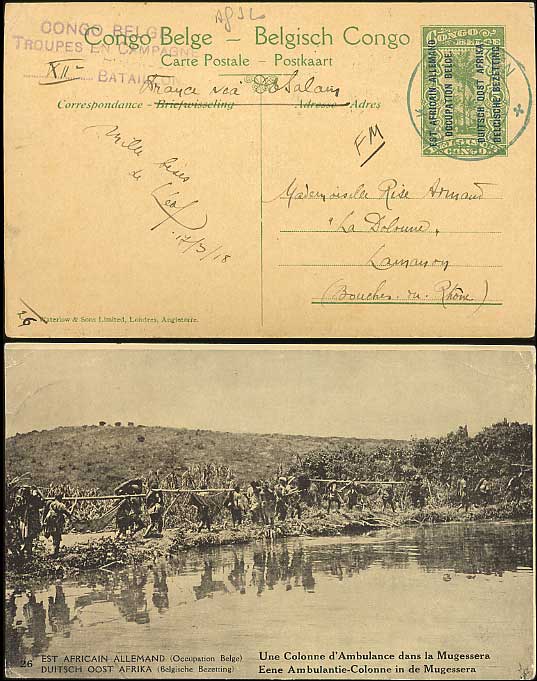 CONGO BELGE
TROUPES EN CAMPAGNE
XII
BATAILLON
Congo Belge – Belgisch Congo
Carte Postale – Postkaart
France via Salam
Correspondance – Briefwisseling
Adresse – Adres
CONGO
EST AFRICAIN ALLEMAND
OCCUPATION BELGE.
DUITSCH OOST AFRIKA
BELGISCHE BEZETTING.
FM
Mille
de Léo
17/3/18
Mademoiselle Rise Armand
"La Dolonne"
Lamanon
(Bouches-du-Rhône)
26
Waterlow & Sons Limited, Londres, Angleterre.
26
EST AFRICAIN ALLEMAND (Occupation Belge)
DUITSCH OOST AFRIKA (Belgische Bezetting)
Une Colonne d'Ambulance dans la Mugessera
Eene Ambulantie-Colonne in de Mugessera